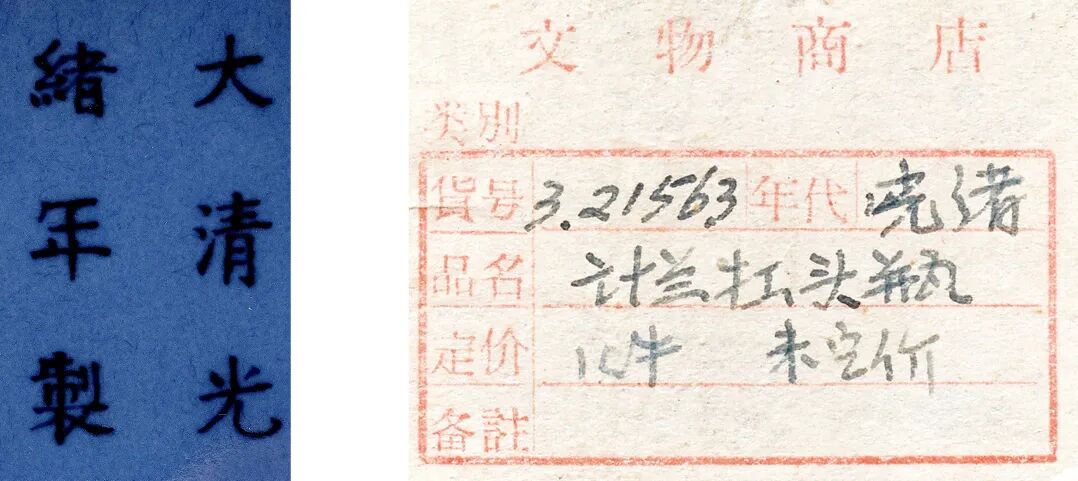 大清光
緒年製
文物商店
类别
货号 3.21563 年代 光绪
品名 计兰扛头瓶
定价 1件 未定价
备註